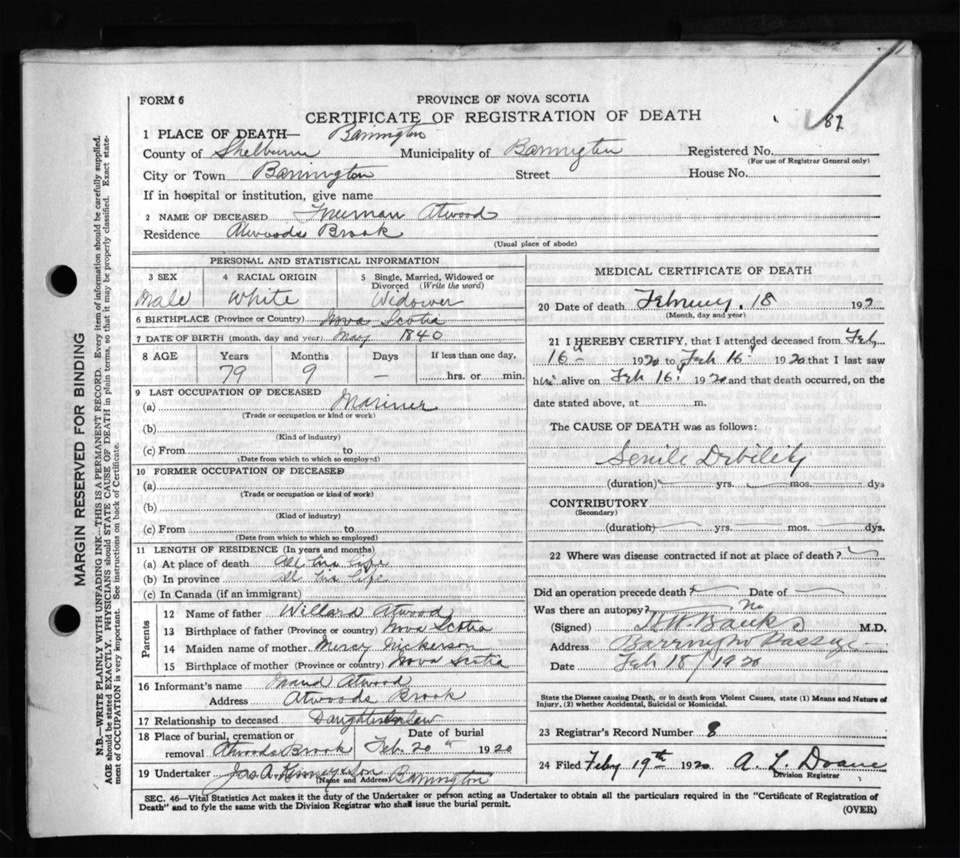 FORM 6
PROVINCE OF NOVA SCOTIA
CERTIFICATE OF REGISTRATION OF DEATH
87
1 PLACE OF DEATH— Barrington
County of Shelburne Municipality of Barrington Registered No.
(For use of Registrar General only)
City or Town Barrington Street House No.
If in hospital or institution, give name
2 NAME OF DECEASED Freeman Atwood
Residence Atwoods Brook
(Usual place of abode)
PERSONAL AND STATISTICAL INFORMATION
3 SEX 4 RACIAL ORIGIN 5 Single, Married, Widowed or
Divorced (Write the word)
Male White Widower
6 BIRTHPLACE (Province or Country) Nova Scotia
7 DATE OF BIRTH (month, day and year) May 1840
8 AGE Years Months Days If less than one day,
79 9 — hrs. or min.
9 LAST OCCUPATION OF DECEASED
(a) Mariner
(Trade or occupation or kind or work)
(b)
(Kind of industry)
(c) From to
(Date from which to which so employed)
10 FORMER OCCUPATION OF DECEASED
(a)
(Trade or occupation or kind of work)
(b)
(Kind of industry)
(c) From to
(Date from which to which so employed)
11 LENGTH OF RESIDENCE (In years and months)
(a) At place of death All his life
(b) In province All his life
(c) In Canada (if an immigrant)
Parents
12 Name of father Willard Atwood
13 Birthplace of father (Province or country) Nova Scotia
14 Maiden name of mother Mercy Nickerson
15 Birthplace of mother (Province or country) Nova Scotia
16 Informant's name Maud Atwood
Address Atwoods Brook
17 Relationship to deceased Daughter in law
18 Place of burial, cremation or Date of burial
removal Atwoods Brook Feb. 20 " 1920
19 Undertaker Jas A. Kenney & Son Barrington
(Name and Address)
MEDICAL CERTIFICATE OF DEATH
20 Date of death February. 18 192
(Month, day and year)
21 I HEREBY CERTIFY, that I attended deceased from Feb
16th 1920 to Feb 16th 1920 that I last saw
him alive on Feb 16th 1920 and that death occurred, on the
date stated above, at m.
The CAUSE OF DEATH was as follows:
Senile Debility
(duration) yrs. mos. dys
CONTRIBUTORY
(Secondary)
(duration) yrs. mos. dys.
22 Where was disease contracted if not at place of death?
Did an operation precede death? Date of
Was there an autopsy? No
(Signed) Banks M.D.
Address Barrington Passage
Date Feb 18/1920
State the Disease causing Death, or in death from Violent Causes, state (1) Means and Nature of
Injury, (2) whether Accidental, Suicidal or Homicidal.
23 Registrar's Record Number 8
24 Filed Feby 19th 1920 A. L. Doane
Division Registrar
SEC. 46—Vital Statistics Act makes it the duty of the Undertaker or person acting as Undertaker to obtain all the particulars required in the "Certificate of Registration of
Death" and to fyle the same with the Division Registrar who shall issue the burial permit.
(OVER)
MARGIN RESERVED FOR BINDING
N.B.—WRITE PLAINLY WITH UNFADING INK—THIS IS A PERMANENT RECORD. Every item of information should be carefully supplied.
AGE should be stated EXACTLY. PHYSICIANS should STATE CAUSE OF DEATH in plain terms, so that it may be properly classified. Exact state-
ment of OCCUPATION is very important. See instructions on back of Certificate.